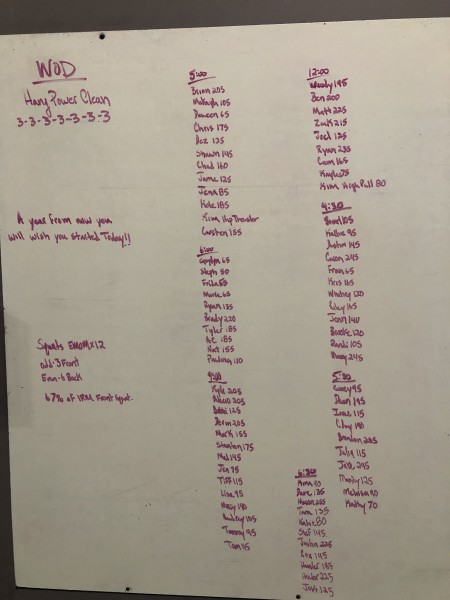 WOD
Hang Power Clean
3-3-3-3-3-3-3
A year from now you
will wish you started Today!!
Squats EMOM x 12
odd-3 Front
Even-6 Back
67% of 1RM Front Squat
5:00
Brian 205
105
65
Chris 175
Doz 125
Shawn 145
Chad 160
Jamie 125
Jenn 85
Kole 185
Kim Hip Thruster
Carsten 155
6:00
65
Steph 80
Frida 55
Marie 65
Ryan 135
Brady 220
Tyler 185
185
155
Paulina 110
9:00
Kyle 205
205
125
Devin 205
Mark 155
Stanton 175
Mel 145
Jen 75
Tiff 115
Lisa 95
140
105
Tammy 95
Tam 115
12:00
Woody 195
Ben 200
Matt 225
Zack 215
Joel 125
Ryan 235
Cam 165
Kaylee 75
Kim High Pull 80
4:30
105
Kellie 95
Dustin 145
245
Fran 65
Kris 165
Whitney 120
Riley 165
Jenn 140
Brooke 120
Randi 105
245
5:30
Casey 95
Dean 195
115
Clay 190
Brandon 235
Julia 115
Jose 245
Mandy 125
Melissa 90
Kathy 70
6:30
Anna 80
Dave 135
235
Tara 135
Katie 80
Stef 145
Justin 225
145
Hunter 185
225
Jess 125